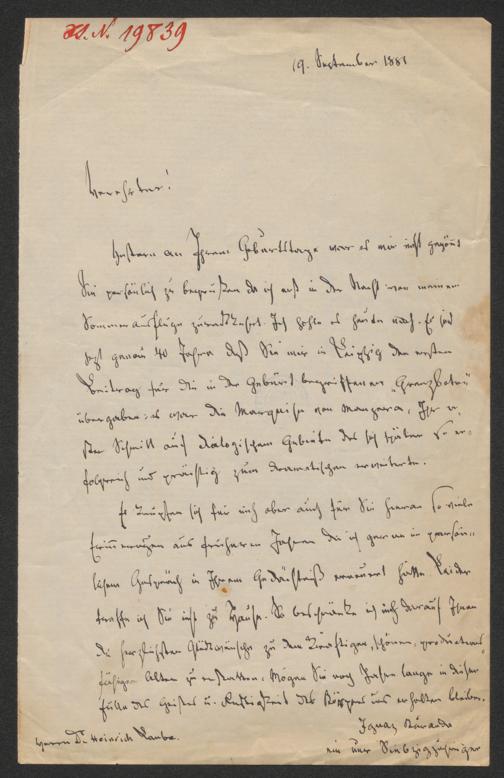 H. I. N. 19839
19. September 1881
Verehrter!
Gestern an Ihrem Geburtstage war es mir nicht gegönnt
Sie persönlich zu begrüßen da ich erst in der Nacht von meinem
Sommerausfluge zurückkehrt. Ich hohle es heute nach. Es sind
jetzt genau 40 Jahre daß Sie mir in Leipzig den ersten
Beitrag für die in der Geburt begriffenen Grenzboten
übergaben: es war die Marquise von
Schritt auf dialogischem Gebiete das sich später so er-
folgreich und prächtig zum dramatischen erweiterte.
Es knüpfen sich für mich aber auch für Sie hieran so viele
Erinnerungen aus früheren Jahren die ich gerne in persön-
lichem Gespräch in Ihrem Gedächtniß erneuert hätte. Leider
treffe ich Sie nicht zu Hause. So beschränke ich mich darauf Ihnen
die herzlichsten Glückwünsche zu dem kräftigen, schönen, produktions-
fähigen Alter zu erstatten. Mögen Sie noch Jahre lange in dieser
Fülle des Geistes u. Rüstigkeit des Körpers uns erhalten bleiben.
Ignaz Kuranda
ein nur Siebzigjähriger
Herrn Dr Heinrich Laube.